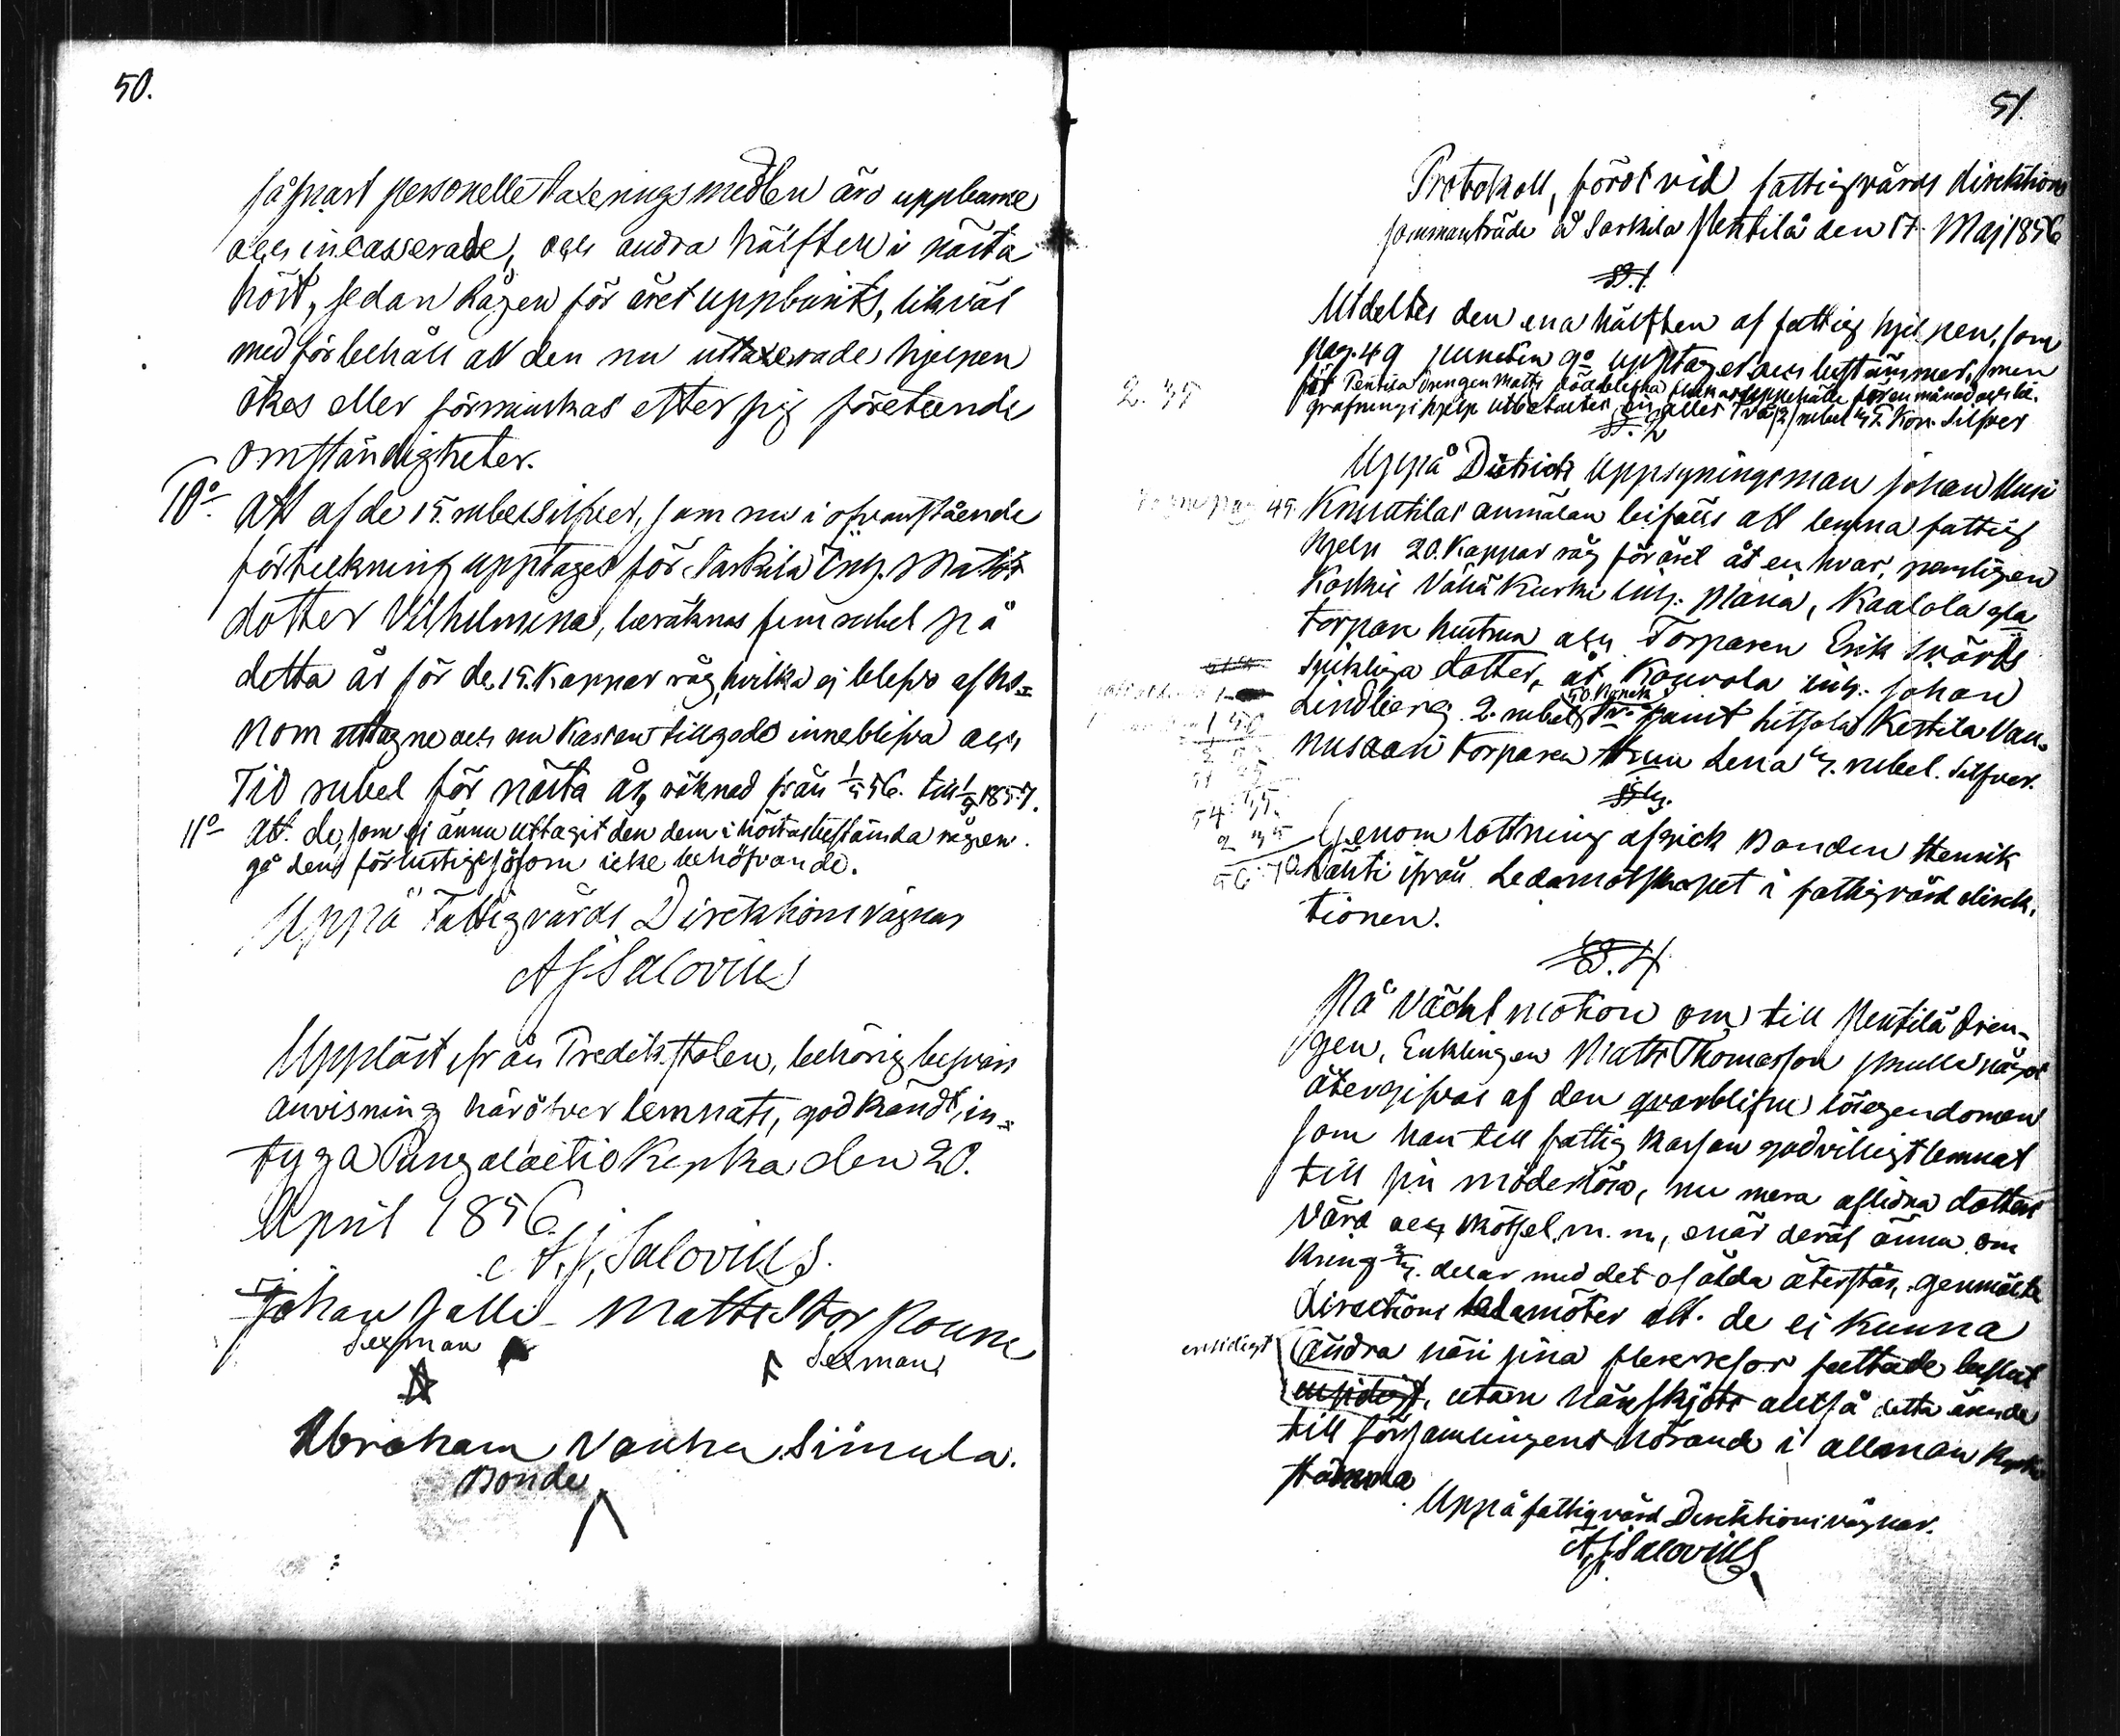 50.
så snart personelle taxeringsmedlen äro uppburne
och incasserade, och andra hälften i nästa
höst, sedan Rågen för året uppburits, likväl
med förbehåll att den nu uttaxerade hjelpen
ökes eller förminskas efter sig företeende
omständigheter.
10º Att af de 15. rubel silfver, som nu i ofvanstående
förteckning upptages för Sarkila Inh. Matts
dotter Vilhelmina, beräknas fem rubel på
detta år för de 15. Kappar råg, hvilka ej blefvo af ho-
nom uttagne och nu Kassan tillgodo inneblifva och
Tio rubel för nästa år, räknad från 1/5 56. till 1/5 1857.
11º Att de, som ej ännu uttagit den dem i höstas bestämda rågen
gå den förlustige såsom icke behöfvande.
Uppå Fattigvårds Direktions vägnar
A J Salovius
Uppläst ifrån Predikstolen, behörig besvärs
anvisning häröfver lemnats, godkändt, in-
tyga Pungalaitio Kyrka den 20.
April 1856.
A. J. Salovius.
Johan Jalli Matts Stor Roune
Sexman Sexman
Abraham Vanha Simula.
Bonde
51.
Protokoll, fördt vid fattigvårds direktions
sammanträde å Sarkila Penttilä den 17. Maj 1856
§. 1.
Utdeltes den ena hälften af fattig hjelpen, som
pag. 49 puncten 9º upptaget och bestämmer, men
för Penttilä drengen Matts dödblefna Enkas uppehälle för en månad och be-
grafningshjelp utbetaltes in alles Två /2/ rubel 35. Kop. Silfver
2. 35
§. 2
Uppå Districts Uppsyningsman Johan Uusi
Knuutilas anmälan bifalls att lemna fattig
hjelp 20. Kappar råg för året åt en hvar, nemligen
Koskis Vähä Kurki inh. Maria, Kaalola gla
Torpare hustrun och Torparen Erik Svärds
sjukliga dotter, åt Kouvola inh. Johan
Lindberg 2. rubel 50. Kopek samt hitfola Kestilä Van-
nusaari Torparen Enka Lena 4. rubel. Silfver.
54 35.
2 35
56 70
§ 3.
Genom lottning afgick Bonden Henrik
Lähti ifrån Ledamotskapet i fattigvård direk-
tionen.
§. 4
På väckt motion om till Penttilä Dren-
gen, Enklingen Matts Thomasson skulle något
återgifvas af den qvarblifne lösegendomen
som han till fattig kassan godvilligt lemnat
till sin moderlösa, nu mera aflidna dotters
vård och skötsel m. m., enär deraf ännu om
kring 3/4. delar med det osålda återstår, genmälte
directions ledamöter att de ej kunna
ensidigt
ändra häri sina flerresor fattade beslut
ensidigt, utan hänskjöts alltså detta ärende
till församlingens hörande i allmän Kyrko
stämma
Uppå fattigvård Direktions vägnar.
A. J. Salovius